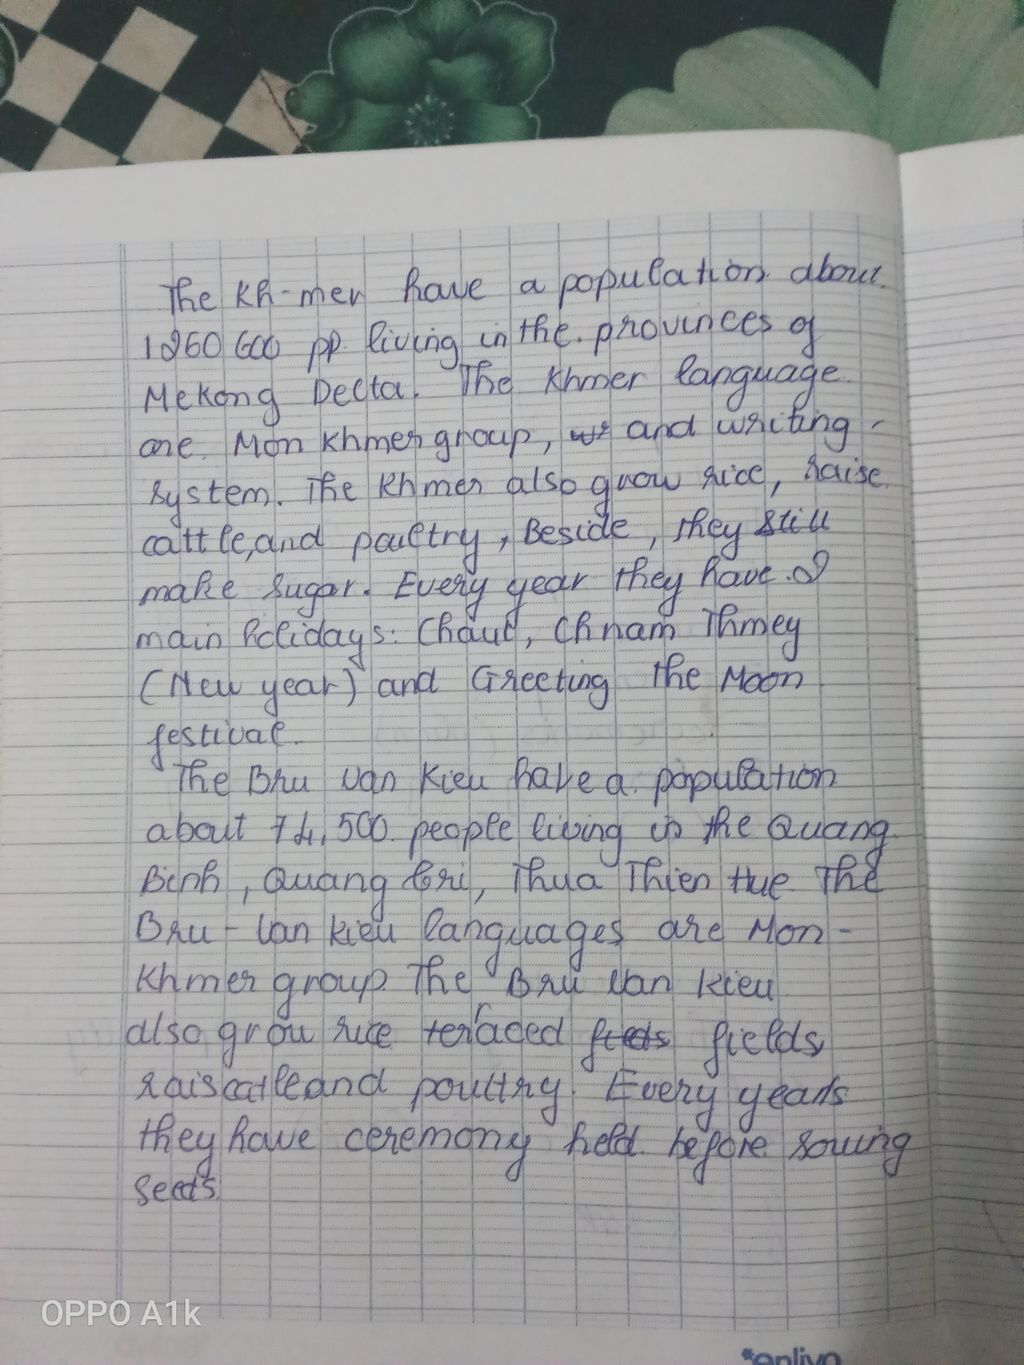 The Kh-mer have a population about
1260 600 pp living in the provinces of
Mekong Delta. The Khmer language
are Mon Khmer group, and writing -
system. The Khmer also grow rice, raise
cattle, and poultry, Beside, they still
make sugar. Every year they have 2
main holidays: Chaul, Chnam Thmey
(New year) and Greeting the Moon
festival.
The Bru Van Kieu have a population
about 74,500 people living in the Quang
Binh, Quang tri, Thua Thien Hue The
Bru - Van Kieu languages are Mon -
Khmer group The Bru Van Kieu
also grow rice teraced fields
rais catle and poultry. Every years
they have ceremony held before sowing
seeds
OPPO A1k